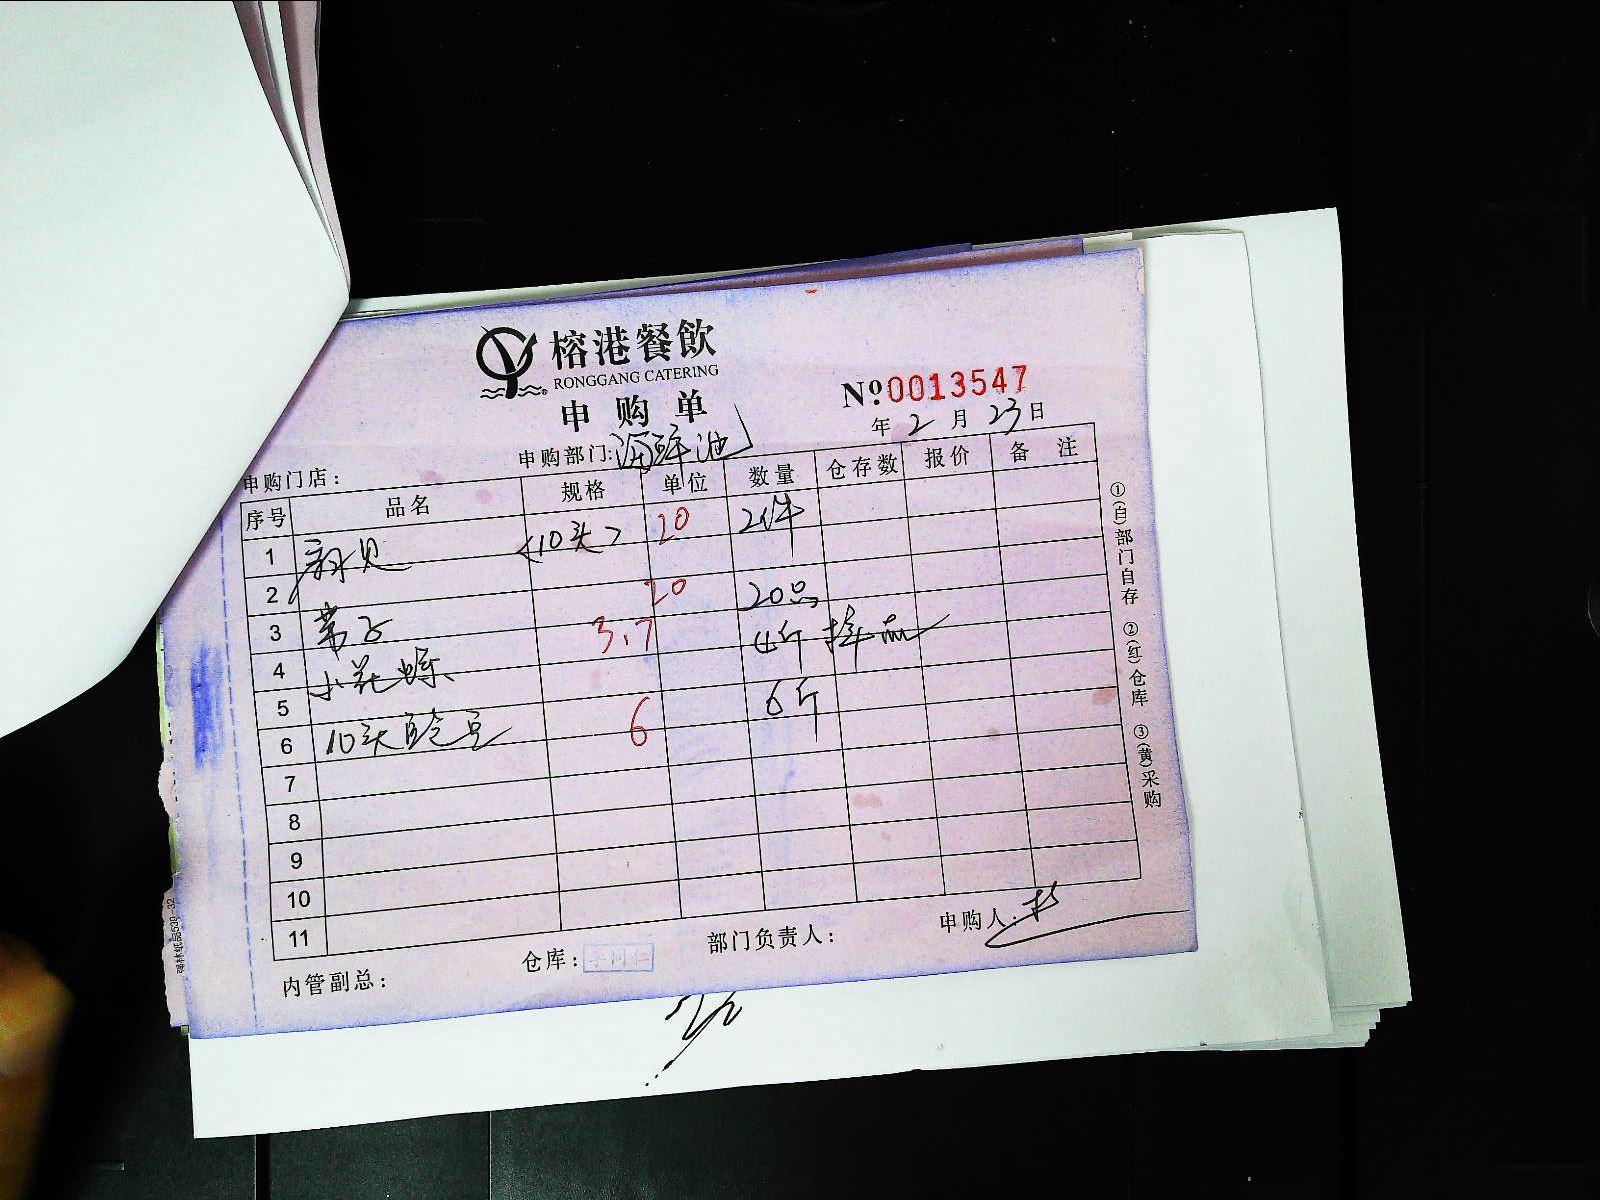 榕港餐飲
RONGGANG CATERING
申购单
No 0013547
年 2 月 23 日
申购门店: 申购部门: 海鲜池
序号 品名 规格 单位 数量 仓存数 报价 备注
1 <10头> 20 2件
2 20 20只
3 带子 3.7 4斤
4 小花螺
5 6 6斤
6 10头
7
8
9
10
11
内管副总: 仓库: 部门负责人: 申购人:
①(白)部门自存 ②(红)仓库 ③(黄)采购